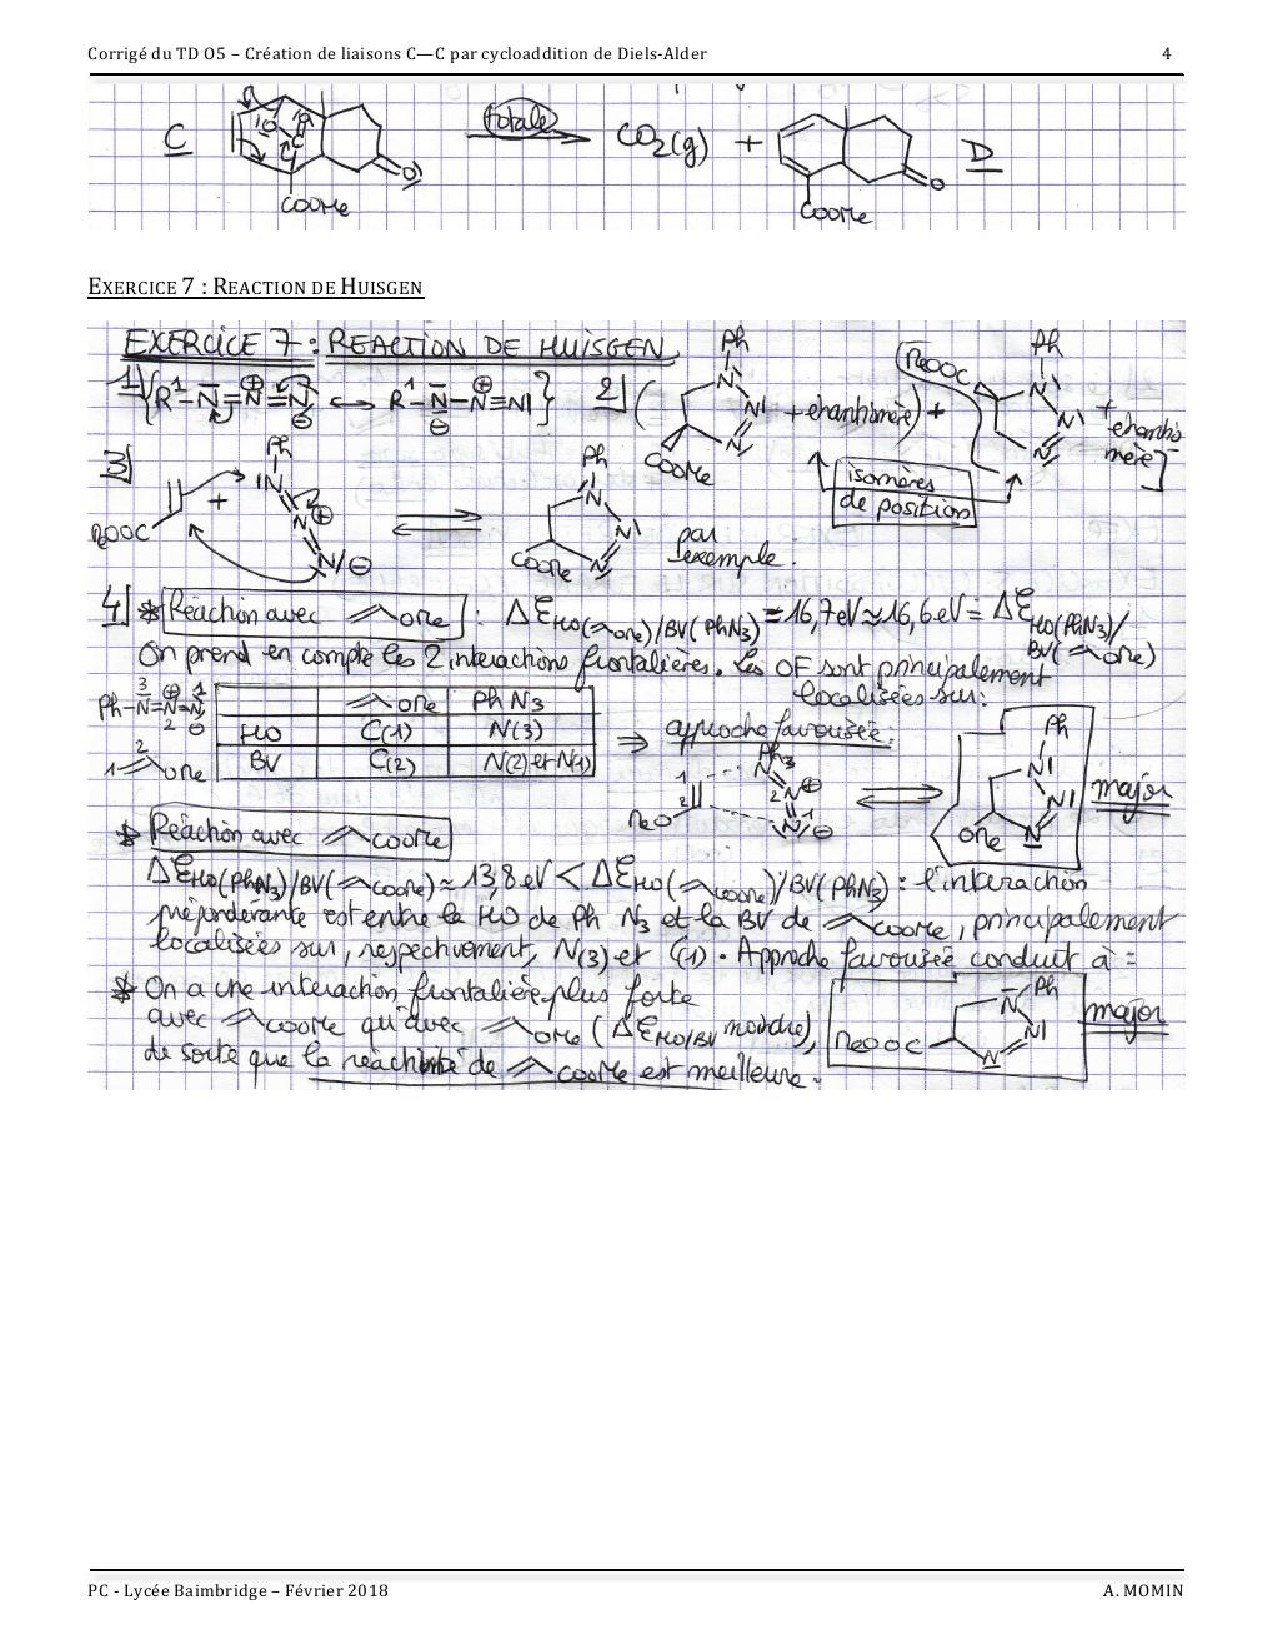 Corrigé du TD O5 – Création de liaisons C—C par cycloaddition de Diels-Alder 4
C totale CO2(g) + D
COOMe COOMe
EXERCICE 7 : REACTION DE HUISGEN
EXERCICE 7 : REACTION DE HUISGEN
1) {R¹–N=N=N ↔ R¹–N–N≡N|} 2) ( Ph N N N COOMe + énantiomère) + MeOOC Ph N N N + énantiomère]
isomères de position
3) MeOOC + Ph N N N ⇌ Ph N N N COOMe par exemple.
4) * Réaction avec OMe : ΔE HO(OMe)/BV(PhN3) = 16,7 eV ≈ 16,6 eV = ΔE HO(PhN3)/BV(OMe)
On prend en compte les 2 interactions frontalières. Les OF sont principalement
localisées sur :
Ph–N=N=N 3 2 1
OMe PhN3
HO C(1) N(3)
BV C(2) N(2) et N(1)
1 2 OMe
⇒ approche favorisée :
MeO Ph N N N ⇌ Ph N N N OMe major
* Réaction avec COOMe
ΔE HO(PhN3)/BV(COOMe) ≈ 13,8 eV < ΔE HO(COOMe)/BV(PhN3) : l'interaction
prépondérante est entre la HO de Ph N3 et la BV de COOMe, principalement
localisées sur, respectivement, N(3) et C(1). Approche favorisée conduit à :
* On a une interaction frontalière plus forte
avec COOMe qu'avec OMe (ΔE HO/BV moindre),
de sorte que la réactivité de COOMe est meilleure.
MeOOC N Ph N N major
PC - Lycée Baimbridge – Février 2018 A. MOMIN